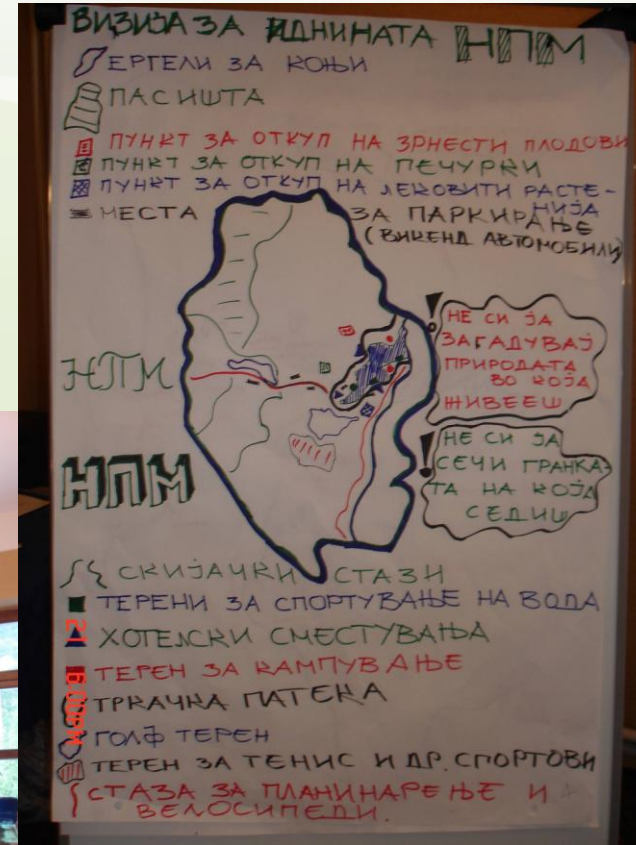 ВИЗИЈА ЗА ИДНИНАТА НПМ
ЕРГЕЛИ ЗА КОЊИ
ПАСИШТА
ПУНКТ ЗА ОТКУП НА ЗРНЕСТИ ПЛОДОВИ
ПУНКТ ЗА ОТКУП НА ПЕЧУРКИ
ПУНКТ ЗА ОТКУП НА ЛЕКОВИТИ РАСТЕ-
НИЈА
МЕСТА ЗА ПАРКИРАЊЕ
(ВИКЕНД АВТОМОБИЛИ)
НПМ
НПМ
! НЕ СИ ЈА
ЗАГАДУВАЈ
ПРИРОДАТА
ВО КОЈА
ЖИВЕЕШ
! НЕ СИ ЈА
СЕЧИ ГРАНКА-
ТА НА КОЈА
СЕДИШ
СКИЈАЧКИ СТАЗИ
ТЕРЕНИ ЗА СПОРТУВАЊЕ НА ВОДА
ХОТЕЛСКИ СМЕСТУВАЊА
ТЕРЕН ЗА КАМПУВАЊЕ
ТРКАЧКА ПАТЕКА
ГОЛФ ТЕРЕН
ТЕРЕН ЗА ТЕНИС И ДР. СПОРТОВИ
СТАЗА ЗА ПЛАНИНАРЕЊЕ И
ВЕЛОСИПЕДИ.